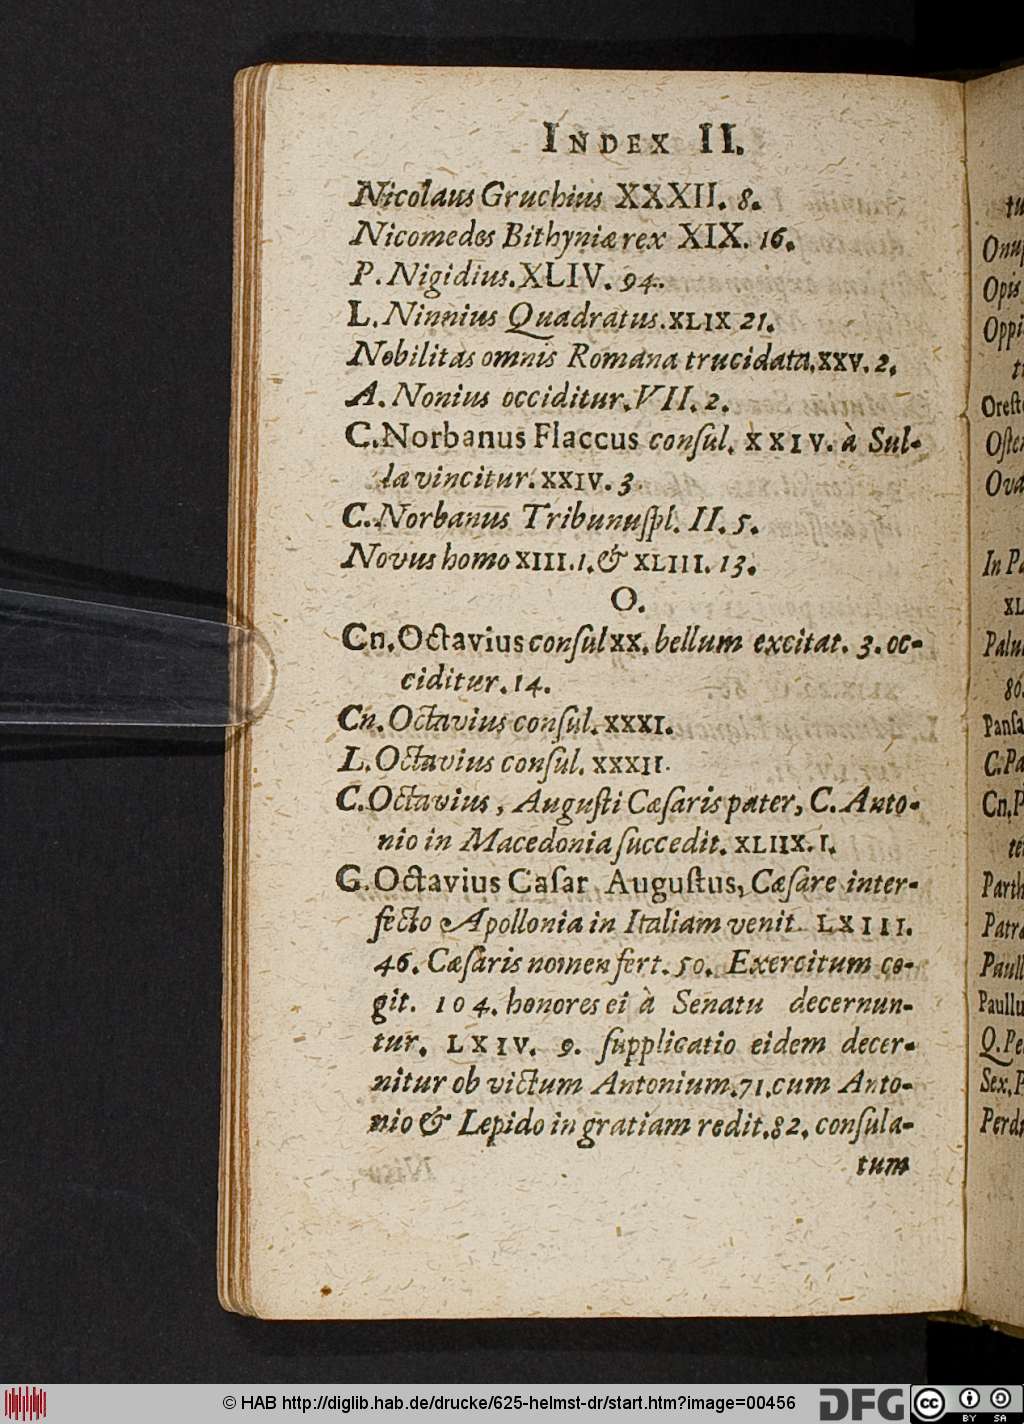 INDEX II.
Nicolaus Gruchius XXXII. 8.
Nicomedes Bithyniæ rex XIX. 16.
P. Nigidius. XLIV. 94.
L. Ninnius Quadratus. XLIX 21.
Nobilitas omnis Romana trucidata. XXV. 2.
A. Nonius occiditur. VII. 2.
C. Norbanus Flaccus consul. XXIV. à Sul-
la vincitur. XXIV. 3.
C. Norbanus Tribunuspl. II. 5.
Novus homo XIII. 1. & XLIII. 13.
O.
Cn. Octavius consul XX. bellum excitat. 3. oc-
ciditur. 14.
Cn. Octavius consul. XXXI.
L. Octavius consul. XXXII.
C. Octavius, Augusti Cæsaris pater, C. Anto-
nio in Macedonia succedit. XLIIX. I.
G. Octavius Casar Augustus, Cæsare inter-
fecto Apollonia in Italiam venit. LXIII.
46. Cæsaris nomen fert. 50. Exercitum co-
git. 104. honores ei à Senatu decernun-
tur. LXIV. 9. supplicatio eidem decer-
nitur ob victum Antonium. 71. cum Anto-
nio & Lepido in gratiam redit. 82. consula-
tum
tu
Onup
Opis
Oppi
t
Oreste
Osten
Ova
In Pa
XL
Palu
86
Pansa
C. Pa
Cn. P
te
Parth
Patr
Paull
Paullu
Q. Pe
Sex. P
Perd
© HAB http://diglib.hab.de/drucke/625-helmst-dr/start.htm?image=00456
DFG
cc BY SA